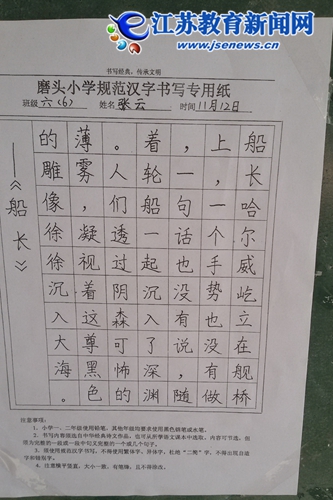 江苏教育新闻网
www.jsenews.cn
书写经典，传承文明
磨头小学规范汉字书写专用纸
班级 六(6) 姓名 张云 时间 11月12日
船长哈尔威屹立在舰桥
上，一个手势也没有做
，一句话也没有说，随
着轮船一起沉入了深渊
。人们透过阴森可怖的
薄雾，凝视着这尊黑色
的雕像徐徐沉入大海。
——《船长》
注意事项：
1、小学一、二年级使用铅笔，其他年级均要求使用黑色钢笔或水笔。
2、书写内容须选自中华经典诗文作品，也可从所学语文课本中选取，内容可节选，但
须为完整的一组或一段中句义完整的一个或几个句子。
3、须使用规范汉字书写，不得使用繁体字、异体字，杜绝“二简”字，不得出现自造
字和错别字。
4、注意横平竖直，大小一致，且不得涂改。